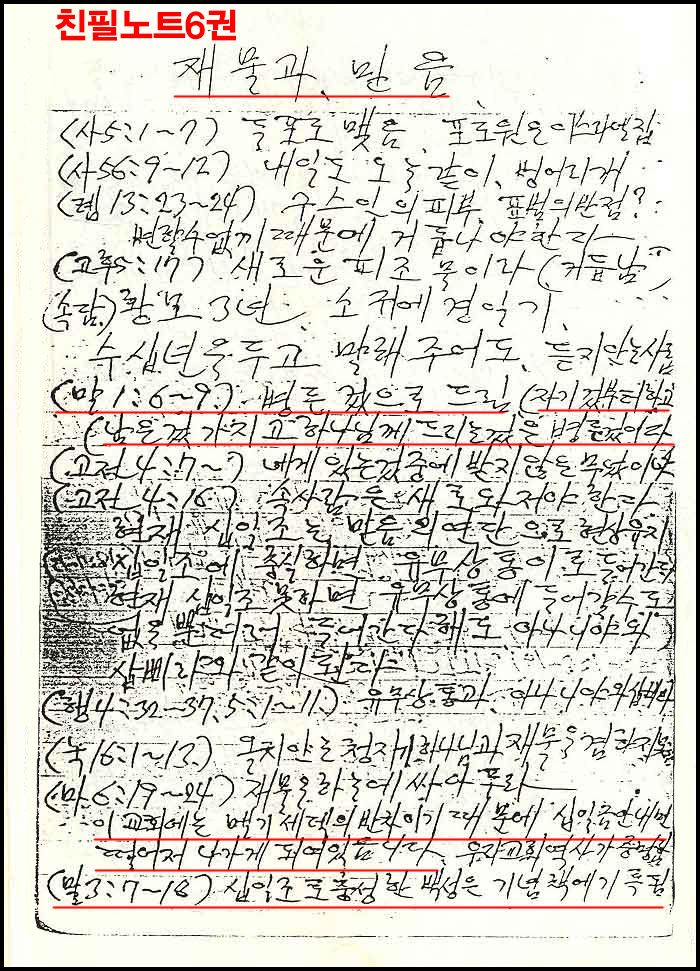 친필노트6권
재물과 믿음
(사5:1~7) 들포도 맺음, 포도원은 이스라엘집
(사56:9~12) 내일도 오늘같이, 벙어리개
(렘13:23~24) 구스인의 피부, 표범의 반점?
변할수 없기 때문에 거듭나야 한다
(고후5:17) 새로운 피조물이라 (거듭남)
(속담) 황모 3년 소귀에 경읽기
수십년을 두고 말해 주어도, 듣지안는사람
(말1:6~9) 병든 것으로 드림 (자기것부터하고
(남은것 가지고 하나님께 드리는것은 병든것이다
(고전4:7~) 네게 있는것중에 받지 않은 무엇이냐
(고전4:16) 속사람은 새로와 져야 한다
현재 십일조는 믿음의 연단으로 현상유지
십일조에 충실하면 유무상통이로 들어간다
현재 십일조 못하면 유무상통에 들어갈수도
없을 뿐더러 들어간다 해도 아나니아와
삽삐라와 같이 된다
(행4:32~37, 5:1~11) 유무상통과 아나니아와삽비라
(눅16:1~13) 올치안는청지기 하나님과 재물을 겸하지못함
(마6:19~24) 재물을하늘에 싸아두라
이 교회에는 멜기세덱의 반차이기 때문에 십일금안내면
떨어저 나가게 되여있읍니다. 우리교회역사가 증명함
(말3:7~18) 십일조로충성한 백성은 기념책에기록됨